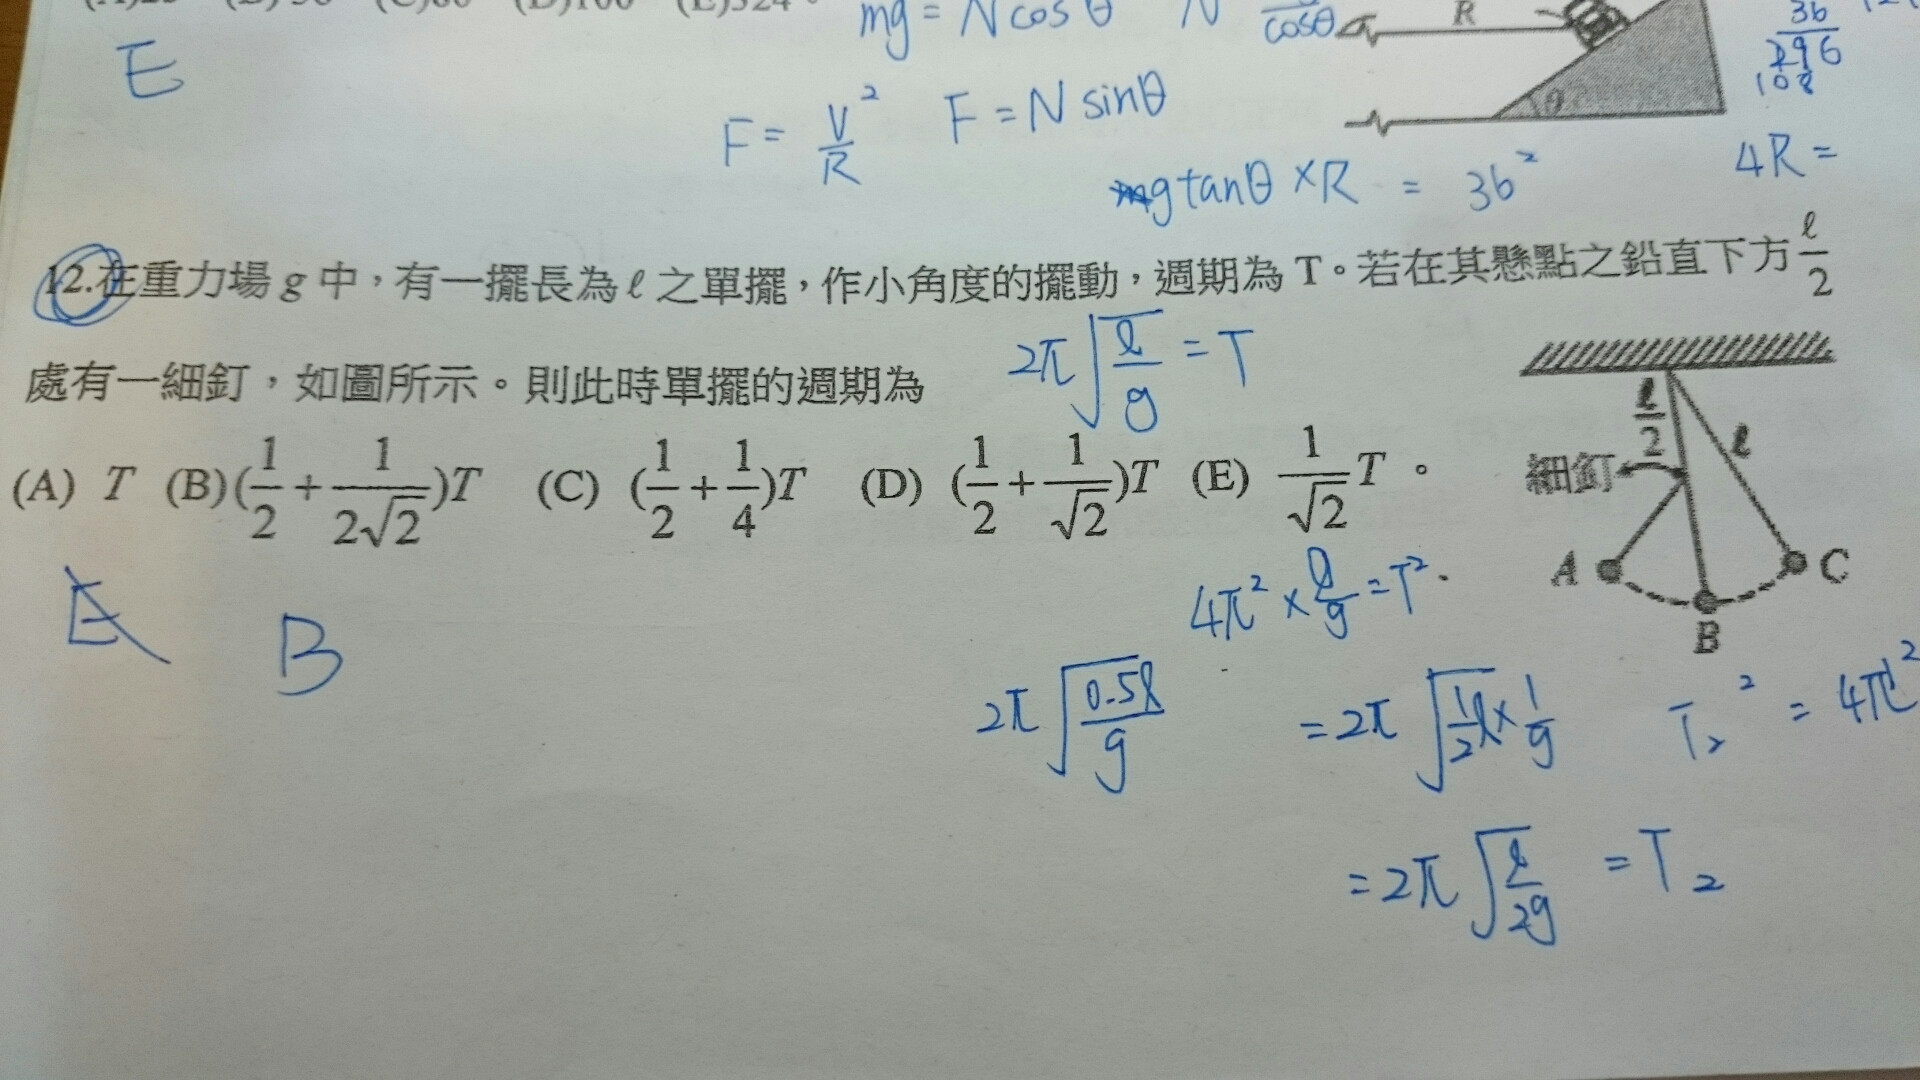 mg = N cos θ N cosθ R
36
296
108
E
F = V²/R F = N sinθ
θ
mg tanθ × R = 36²
4R =
12.在重力場 g 中，有一擺長為 ℓ 之單擺，作小角度的擺動，週期為 T。若在其懸點之鉛直下方 ℓ/2
處有一細釘，如圖所示。則此時單擺的週期為
2π√(ℓ/g) = T
(A) T (B) (1/2 + 1/(2√2))T (C) (1/2 + 1/4)T (D) (1/2 + 1/√2)T (E) 1/√2 T。
ℓ/2 ℓ
細釘
A B C
E B
4π² × ℓ/g = T²
2π√(0.5ℓ/g) = 2π√(1/2 ℓ × 1/g) T₂² = 4π²
= 2π√(ℓ/2g) = T₂